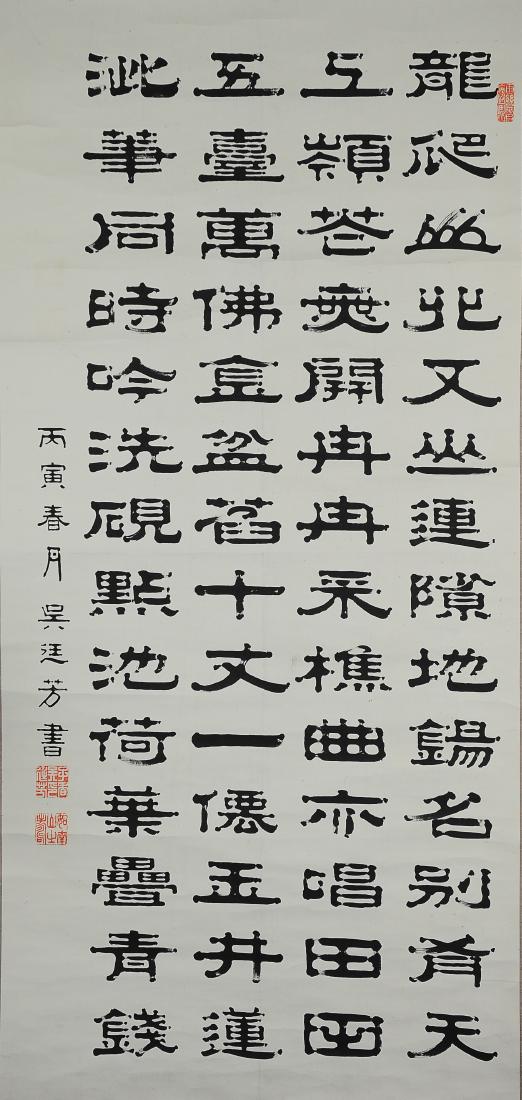 龍爬山北又連隙地錫名別有天
上嶺花無開冉冉采樵曲亦唱田田
五臺萬佛盆十丈一僊玉井蓮
泚筆同時吟洗硯點池荷葉疊青錢
丙寅春月吳廷芳書